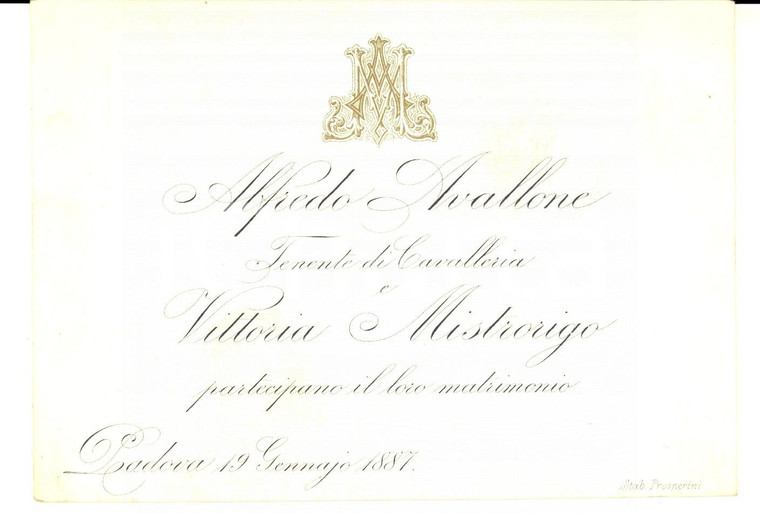 Alfredo Avallone
Tenente di Cavalleria
e
Vittoria Mistrorigo
partecipano il loro matrimonio
Padova 19 Gennajo 1887.
Stab. Prosperini